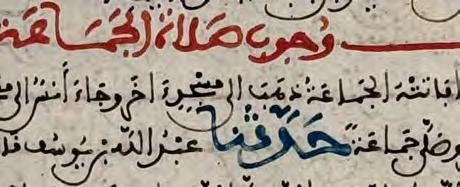 وجوب صلاة الجماعة
اذا فاتته الجماعة ذهب الى مسجد اخر وجاء أنس الى
وصلى جماعة حدثنا عبد الله بن يوسف